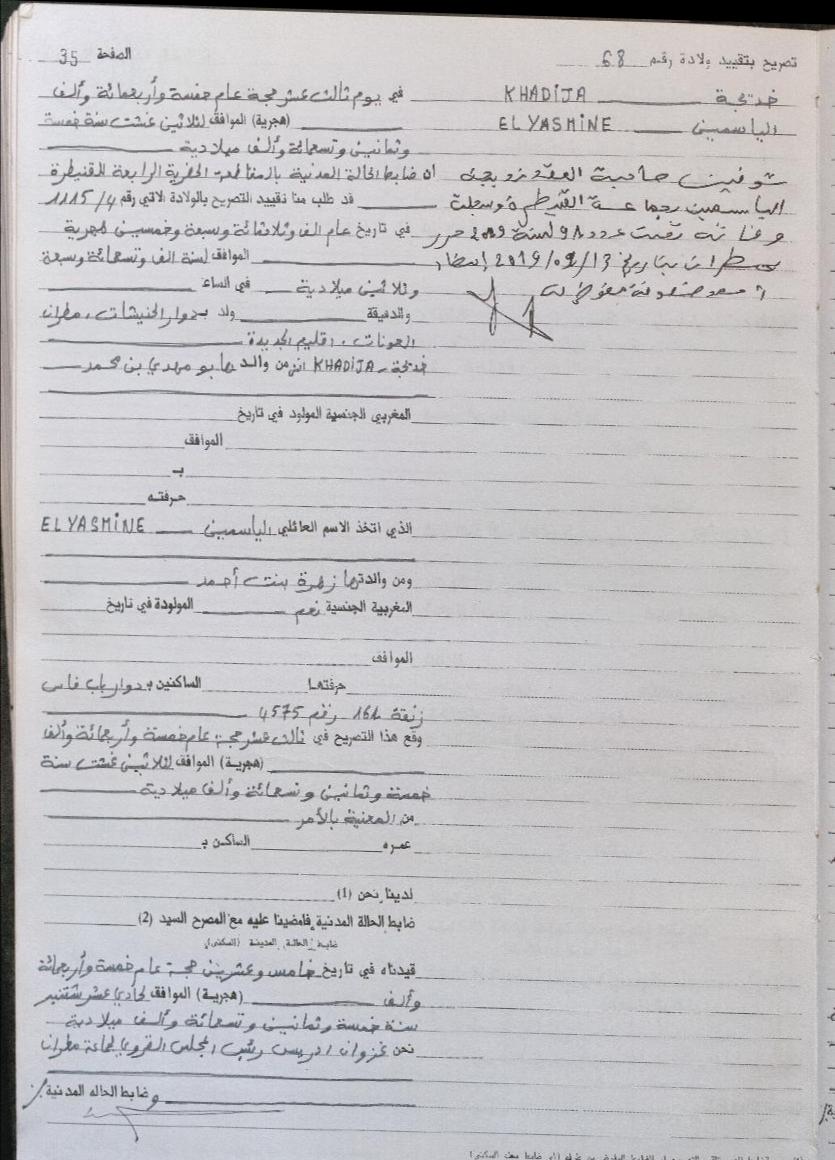 تصريح بتقييد ولادة رقم 68
الصفحة 35
خديجة KHADIJA
الياسميني EL YASMINE
توفيت صاحبة العقد
وفاته تحت عدد 98 لسنة 2019 حرر
بمطران بتاريخ 2019/02/13 إمضاء
في يوم ثالث عشر حجة عام خمسة وأربعمائة وألف
(هجرية) الموافق لثلاثين غشت سنة خمسة
وثمانين وتسعمائة وألف ميلادية
ان ضابط الحالة المدنية بالمقاطعة الحضرية الرابعة للقنيطرة
قد طلب منا تقييد التصريح بالولادة الاتي رقم 4/1115
في تاريخ عام الف وثلاثمائة وسبعة وخمسين هجرية
الموافق لسنة الف وتسعمائة وسبعة
وثلاثين ميلادية في الساعة
والدقيقة ولد بدوار الخنيشات، مطران
العونات، اقليم الجديدة
خديجة KHADIJA انثى من والدها بو مهدي بن محمد
المغربي الجنسية المولود في تاريخ
الموافق
بـ
حرفتـه
الذي اتخذ الاسم العائلي الياسميني EL YASMINE
ومن والدتها زهرة بنت أحمد
المغربية الجنسية نعم المولودة في تاريخ
الموافق
حرفتهـا الساكنين بـ دوار باب فاس
زنقة 161 رقم 4575
وقع هذا التصريح في ثالث عشر حجة عام خمسة وأربعمائة وألف
(هجرية) الموافق لثلاثين غشت سنة
خمسة وثمانين وتسعمائة وألف ميلادية
من المعنية بالأمر
عمـره الساكـن بـ
لدينـا نحن (1)
ضابط الحالة المدنية فامضينا عليه مع المصرح السيد (2)
ضابط الحالة المدنية (السكنى)
قيدناه في تاريخ خامس وعشرين حجة عام خمسة وأربعمائة
وألف (هجرية) الموافق لحادي عشر شتنبر
سنة خمسة وثمانين وتسعمائة وألف ميلادية
نحن غزوان ادريس رئيس المجلس القروي لجماعة مطران
وضابط الحاله المدنية